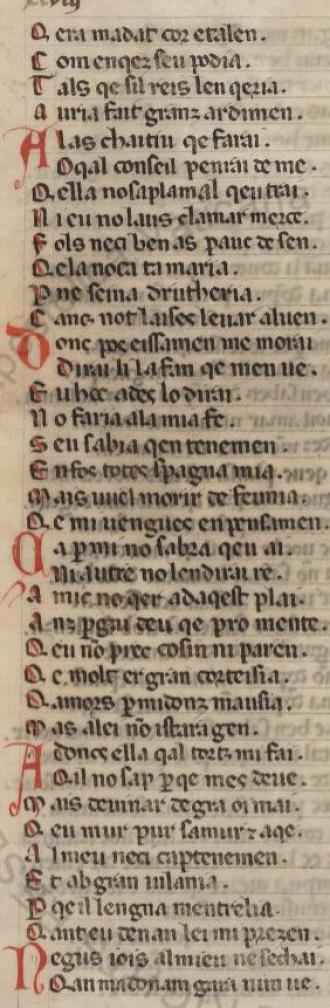 Q era madat cor etalen.
C om enqer seu podia.
T als qe sil reis len qeria.
a uria fait granz ardimen.
A las chaitiu qe farai.
O qal conseil penrai de me.
Q ella no sap lo mal qeu trai.
N i eu no laus clamar merce.
F ols neci ben as pauc de sen.
Q ela noca tamaria.
P ne sema drutheria.
C anc not laises levar al uen.
D onc pos eissamen me morai
Dirai li lafan qe men ue.
E u hoc ades lo dirai.
N o faria ala mia fe.
S en sabia qen tenemen.
E n fos totes spagna mia.
M ais uuel morir de feunia.
Q e mi uengues en pensamen.
I a p mi no sabra qeu ai.
Ni autre no lendirai re.
A mic no qer adaqest plai.
A nz pgtu deu qe pro mente.
Q eu nō prec cosin ni paren.
Q e molt er gran corteisia.
Q amors p midonz mausia.
M as alei nō istara gen.
A doncs ella qal tortz mi fai.
Q il no sap p qe mes deue.
M ais deuinar degra oi mai.
Q eu mur pur samur z aqe.
A l meu neci captenemen.
E t ab gran uilania.
P qeil lengua mentrelia.
Q ant eu denan lei mi prezen.
N egus iois al mieu ne sechai.
Q an madonam gaita nim ue.